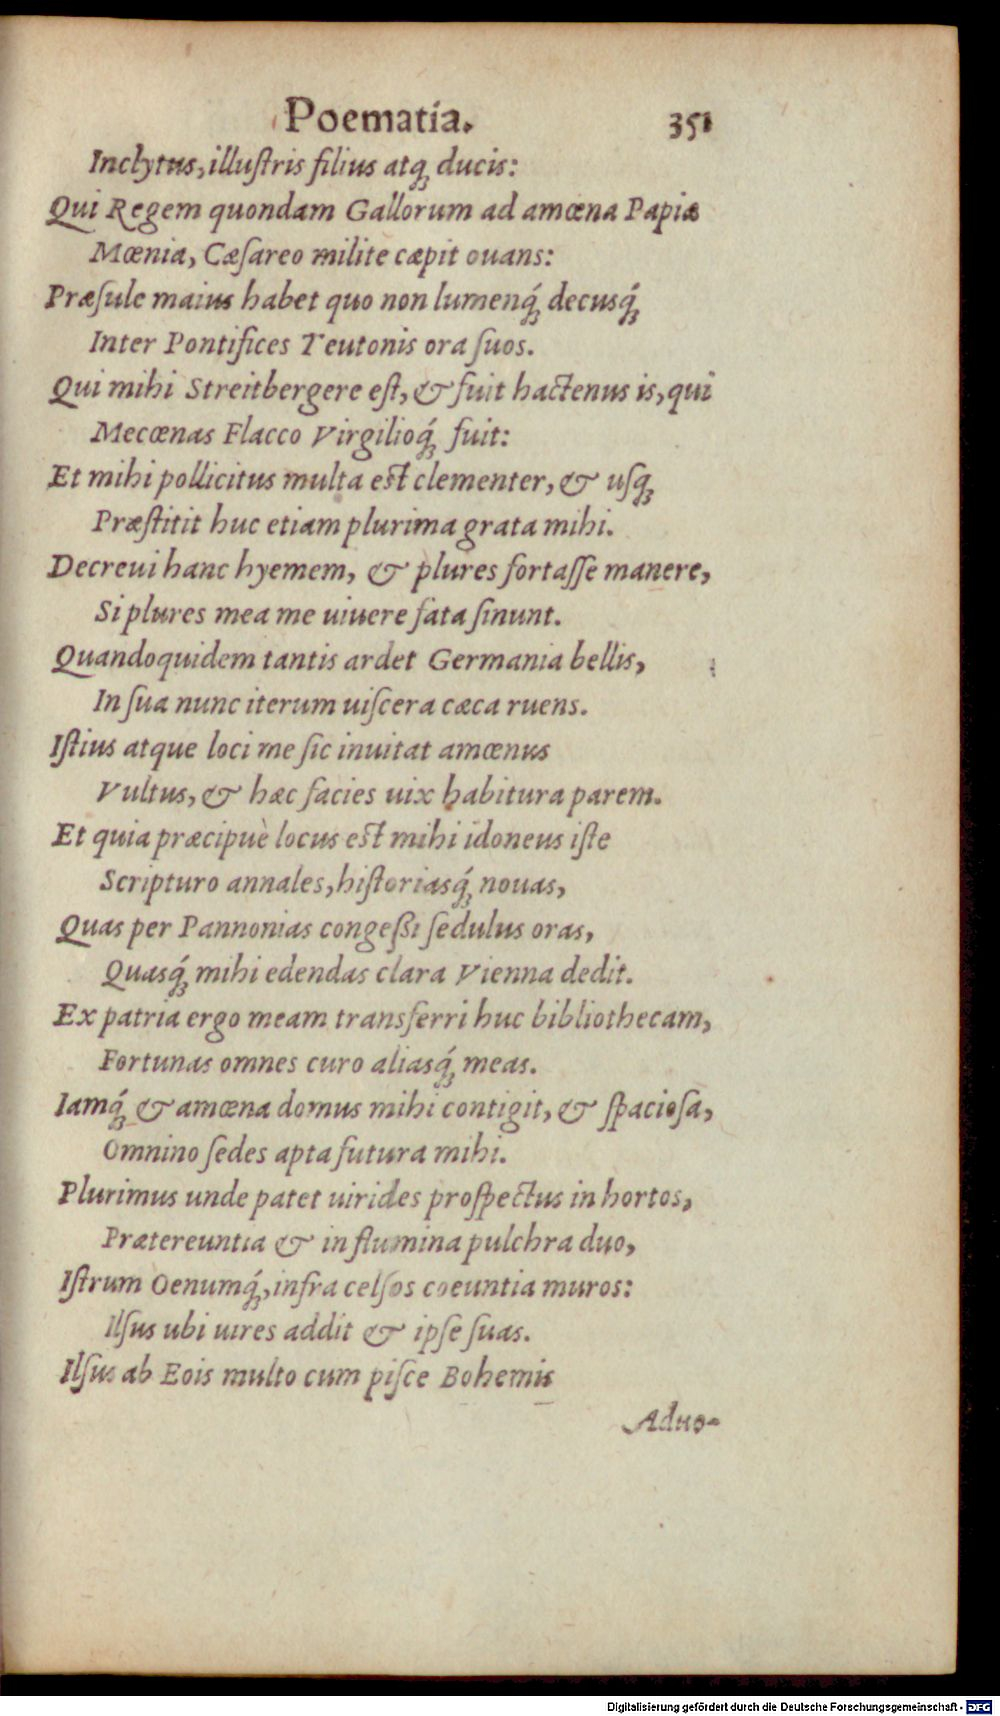 Poematia. 351
Inclytus, illuſtris filius atq́; ducis:
Qui Regem quondam Gallorum ad amœna Papiæ
Mœnia, Cæſareo milite cæpit ouans:
Præſule maius habet quo non lumenq́; decusq́;
Inter Pontifices Teutonis ora ſuos.
Qui mihi Streitbergere eſt, & fuit hactenus is, qui
Mecœnas Flacco Virgilioq́; fuit:
Et mihi pollicitus multa eſt clementer, & uſq;
Præſtitit huc etiam plurima grata mihi.
Decreui hanc hyemem, & plures fortaſſe manere,
Si plures mea me uiuere fata ſinunt.
Quandoquidem tantis ardet Germania bellis,
In ſua nunc iterum uiſcera cæca ruens.
Iſtius atque loci me ſic inuitat amœnus
Vultus, & hæc facies uix habitura parem.
Et quia præcipuè locus eſt mihi idoneus iſte
Scripturo annales, hiſtoriasq́; nouas,
Quas per Pannonias congeßi ſedulus oras,
Quasq́; mihi edendas clara Vienna dedit.
Ex patria ergo meam transferri huc bibliothecam,
Fortunas omnes curo aliasq́; meas.
Iamq́; & amœna domus mihi contigit, & ſpacioſa,
Omnino ſedes apta futura mihi.
Plurimus unde patet uirides proſpectus in hortos,
Prætereuntia & in flumina pulchra duo,
Iſtrum Oenumq́;, infra celſos coeuntia muros:
Ilſus ubi uires addit & ipſe ſuas.
Ilſus ab Eois multo cum piſce Bohemis
Aduo-
Digitalisierung gefördert durch die Deutsche Forschungsgemeinschaft - DFG